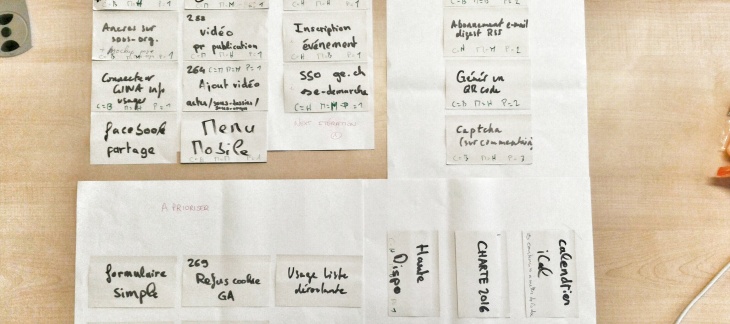 Ancres sur
sous-org.
P=1
282
vidéo
pr publication
C=B M=H P=1
Inscription
événement
C=H M=H P=1
Abonnement e-mail
digest RSS
C=H M=H P=2
Connecteur
GINA info
usager
C=B M=H P=1
264 C=M M=H P=1
Ajout vidéo
actus/sous-dossiers/
SSO ge.ch
ese-demarche
C=H M=M P=1
Génér un
QR code
C=B M=H P=2
facebook
partage
Menu
Mobile
Captcha
(sur commentaire)
A PRIORISER
formulaire
simple
269
Refus cookie
GA
Usage Liste
déroulante
Haute
Dispo
CHARTE 2016
calendrier
iCal